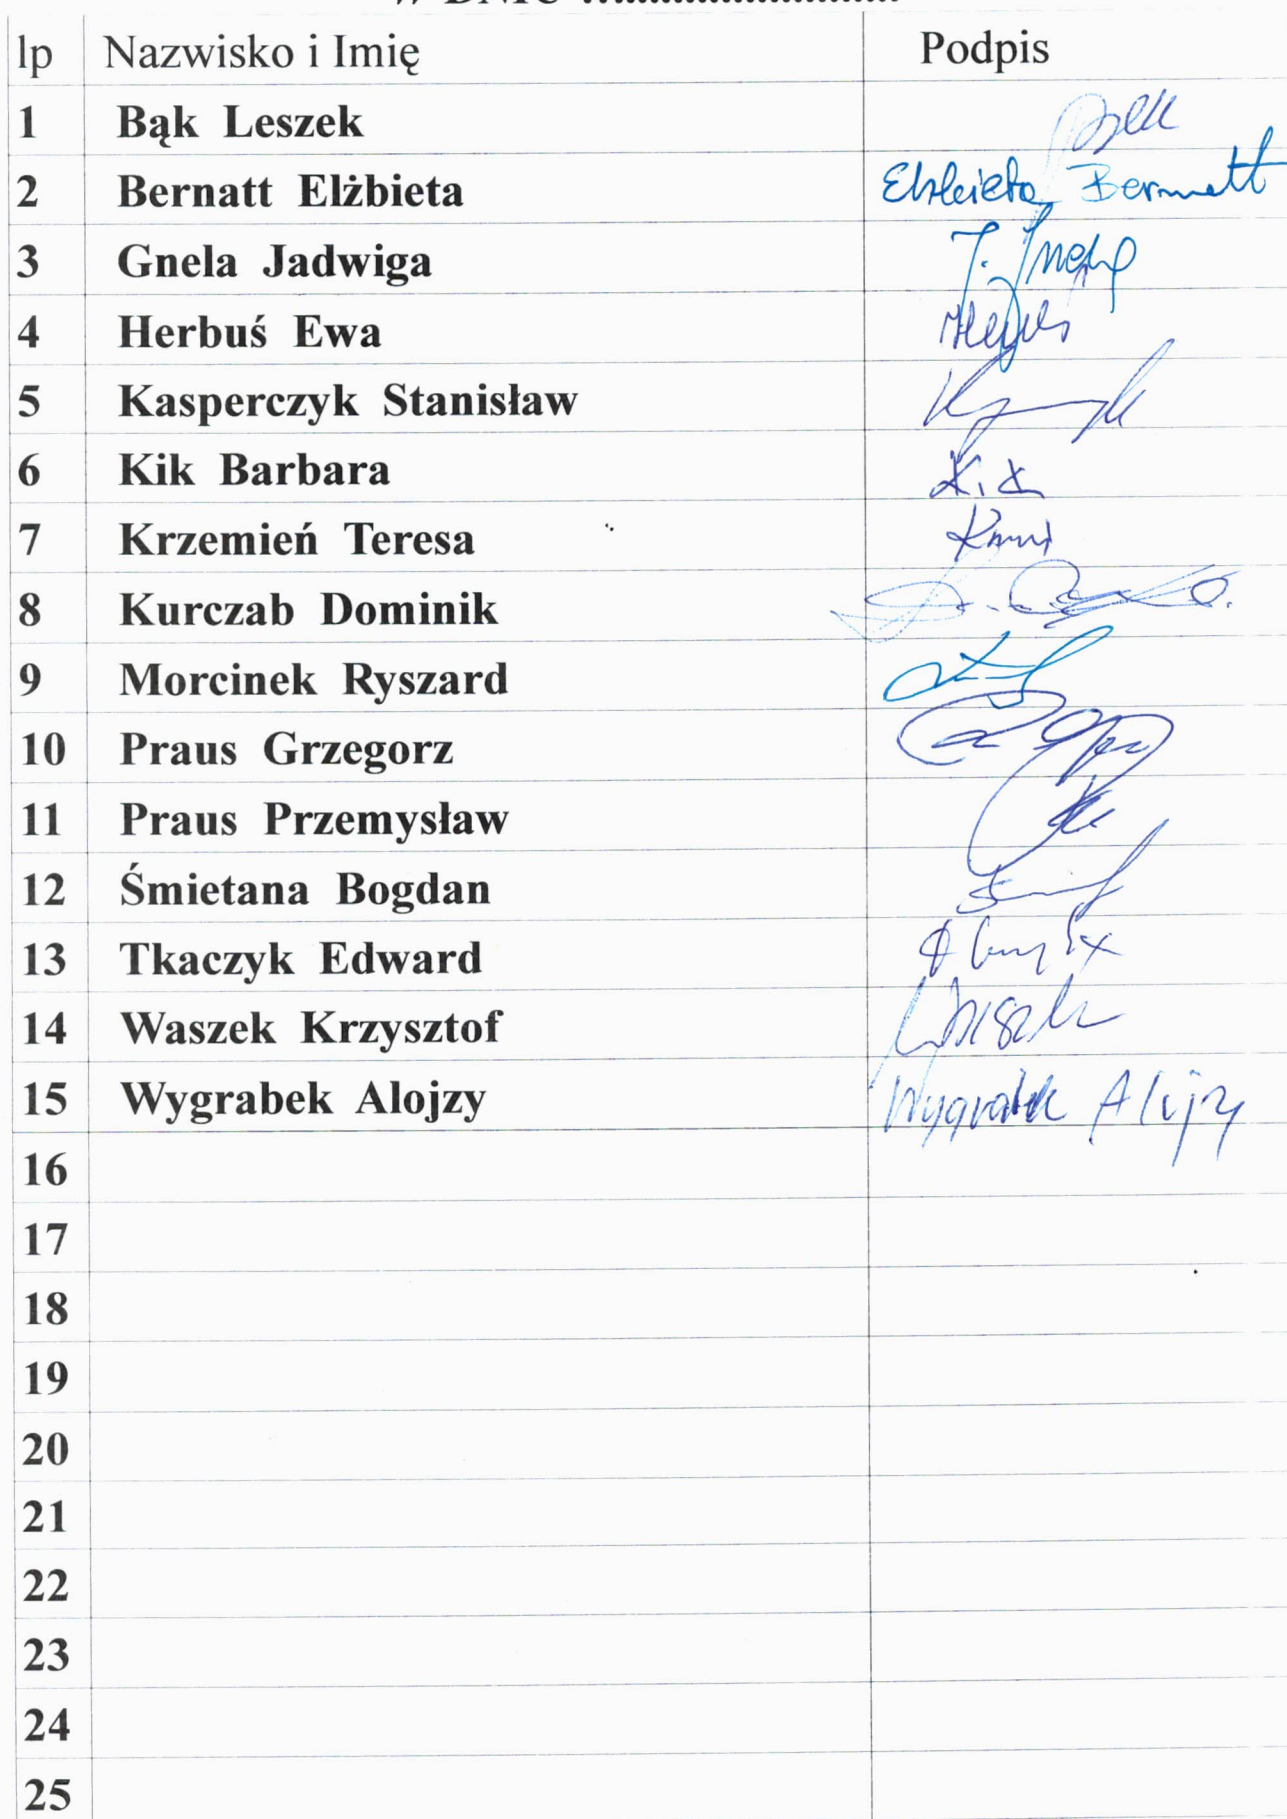 W DNIU ................................
lp Nazwisko i Imię Podpis
1 Bąk Leszek
2 Bernatt Elżbieta Elżbieta Bernatt
3 Gnela Jadwiga J. Gnela
4 Herbuś Ewa
5 Kasperczyk Stanisław
6 Kik Barbara Kik
7 Krzemień Teresa
8 Kurczab Dominik
9 Morcinek Ryszard
10 Praus Grzegorz
11 Praus Przemysław
12 Śmietana Bogdan
13 Tkaczyk Edward
14 Waszek Krzysztof Waszek
15 Wygrabek Alojzy Wygrabek Alojzy
16
17
18
19
20
21
22
23
24
25